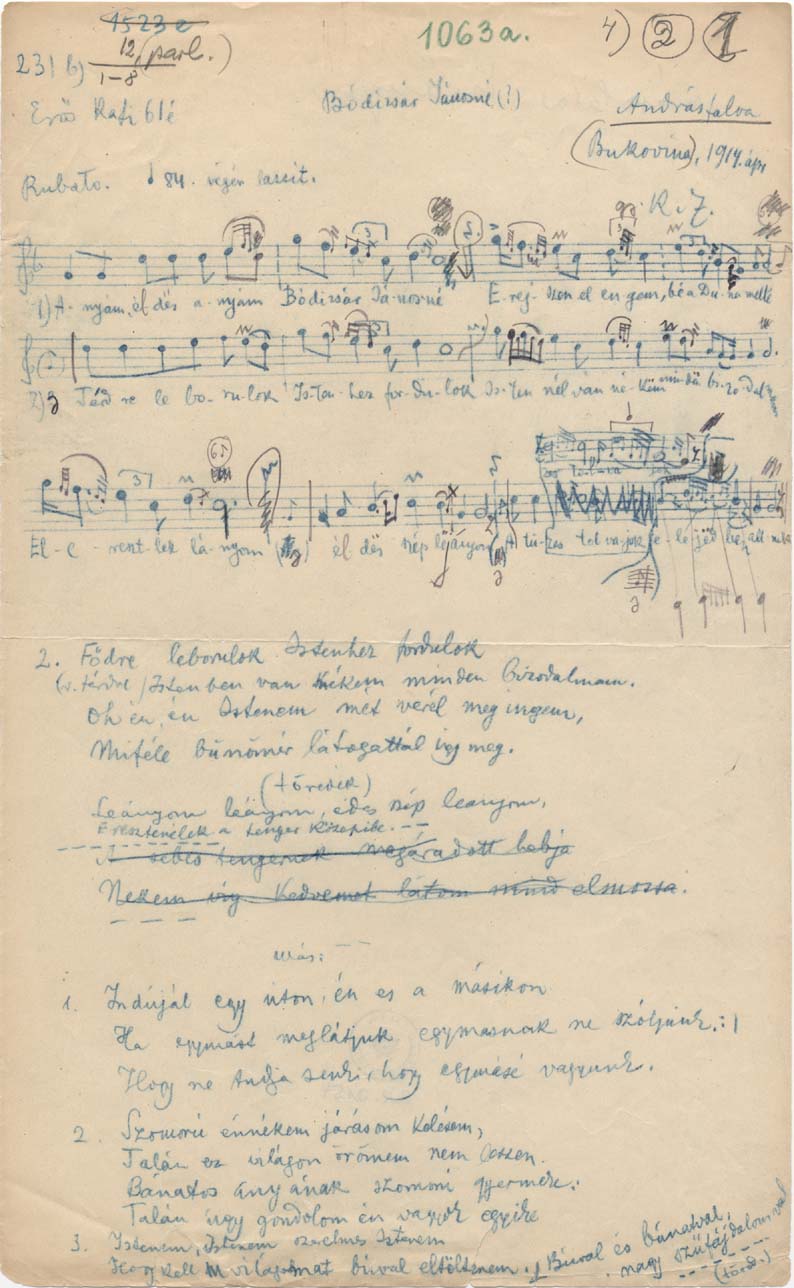 1523e
12 (parl.)
1063a.
4) 2 1
231 b) 1-8
Erős Kati 61 é
Bódizsár Jánosné (?)
Andrásfalva
(Bukovina), 1914. ápr
Rubato. 84. végén lassít.
K. Z.
1) A- nyám, él dës a- nyám Bódizsár Já-nosné E- rej- szen el en gem, bé a Du- na mellé
2) Térd re le bo- ru-lok Is-ten-hez for-du-lok Is-ten nél van né-këm min-dën bi-zo-dal
El- e- resz-lek lá- nyom él dës szép lejányom A tü-zes tol vajok
2. Födre leborulok Istenhez fordulok
(v. térdre / Istenben van nékëm minden bizodalmam.
Oh én, én Istenem mét verél meg ingem,
Miféle bűnömér látogattál így meg.
(töredék)
Leányom leányom, édës szép leányom,
Eresztenélek a tenger közepibe. --
A sebes tengernek megáradott habja
Nekem víg kedvemet látom mind elmossa.
Más:
1. Indúljál egy úton, én es a másikon
Ha egymást meglátjuk egymásnak ne szóljunk. :|
Hogy ne tudja senki, hogy egymásé vagyunk.
2. Szomorú énnékem járásom kelésem,
Talán ez világon örömem nem leszen.
Bánatos anyának szomorú gyermeke:
Talán úgy gondolom én vagyok egyike
3. Istenem, Istenem szerelmes Istenem
Hogy kell világomat búval eltöltenem.
Búval és bánatval,
nagy szűfájdalomval
(töred.)